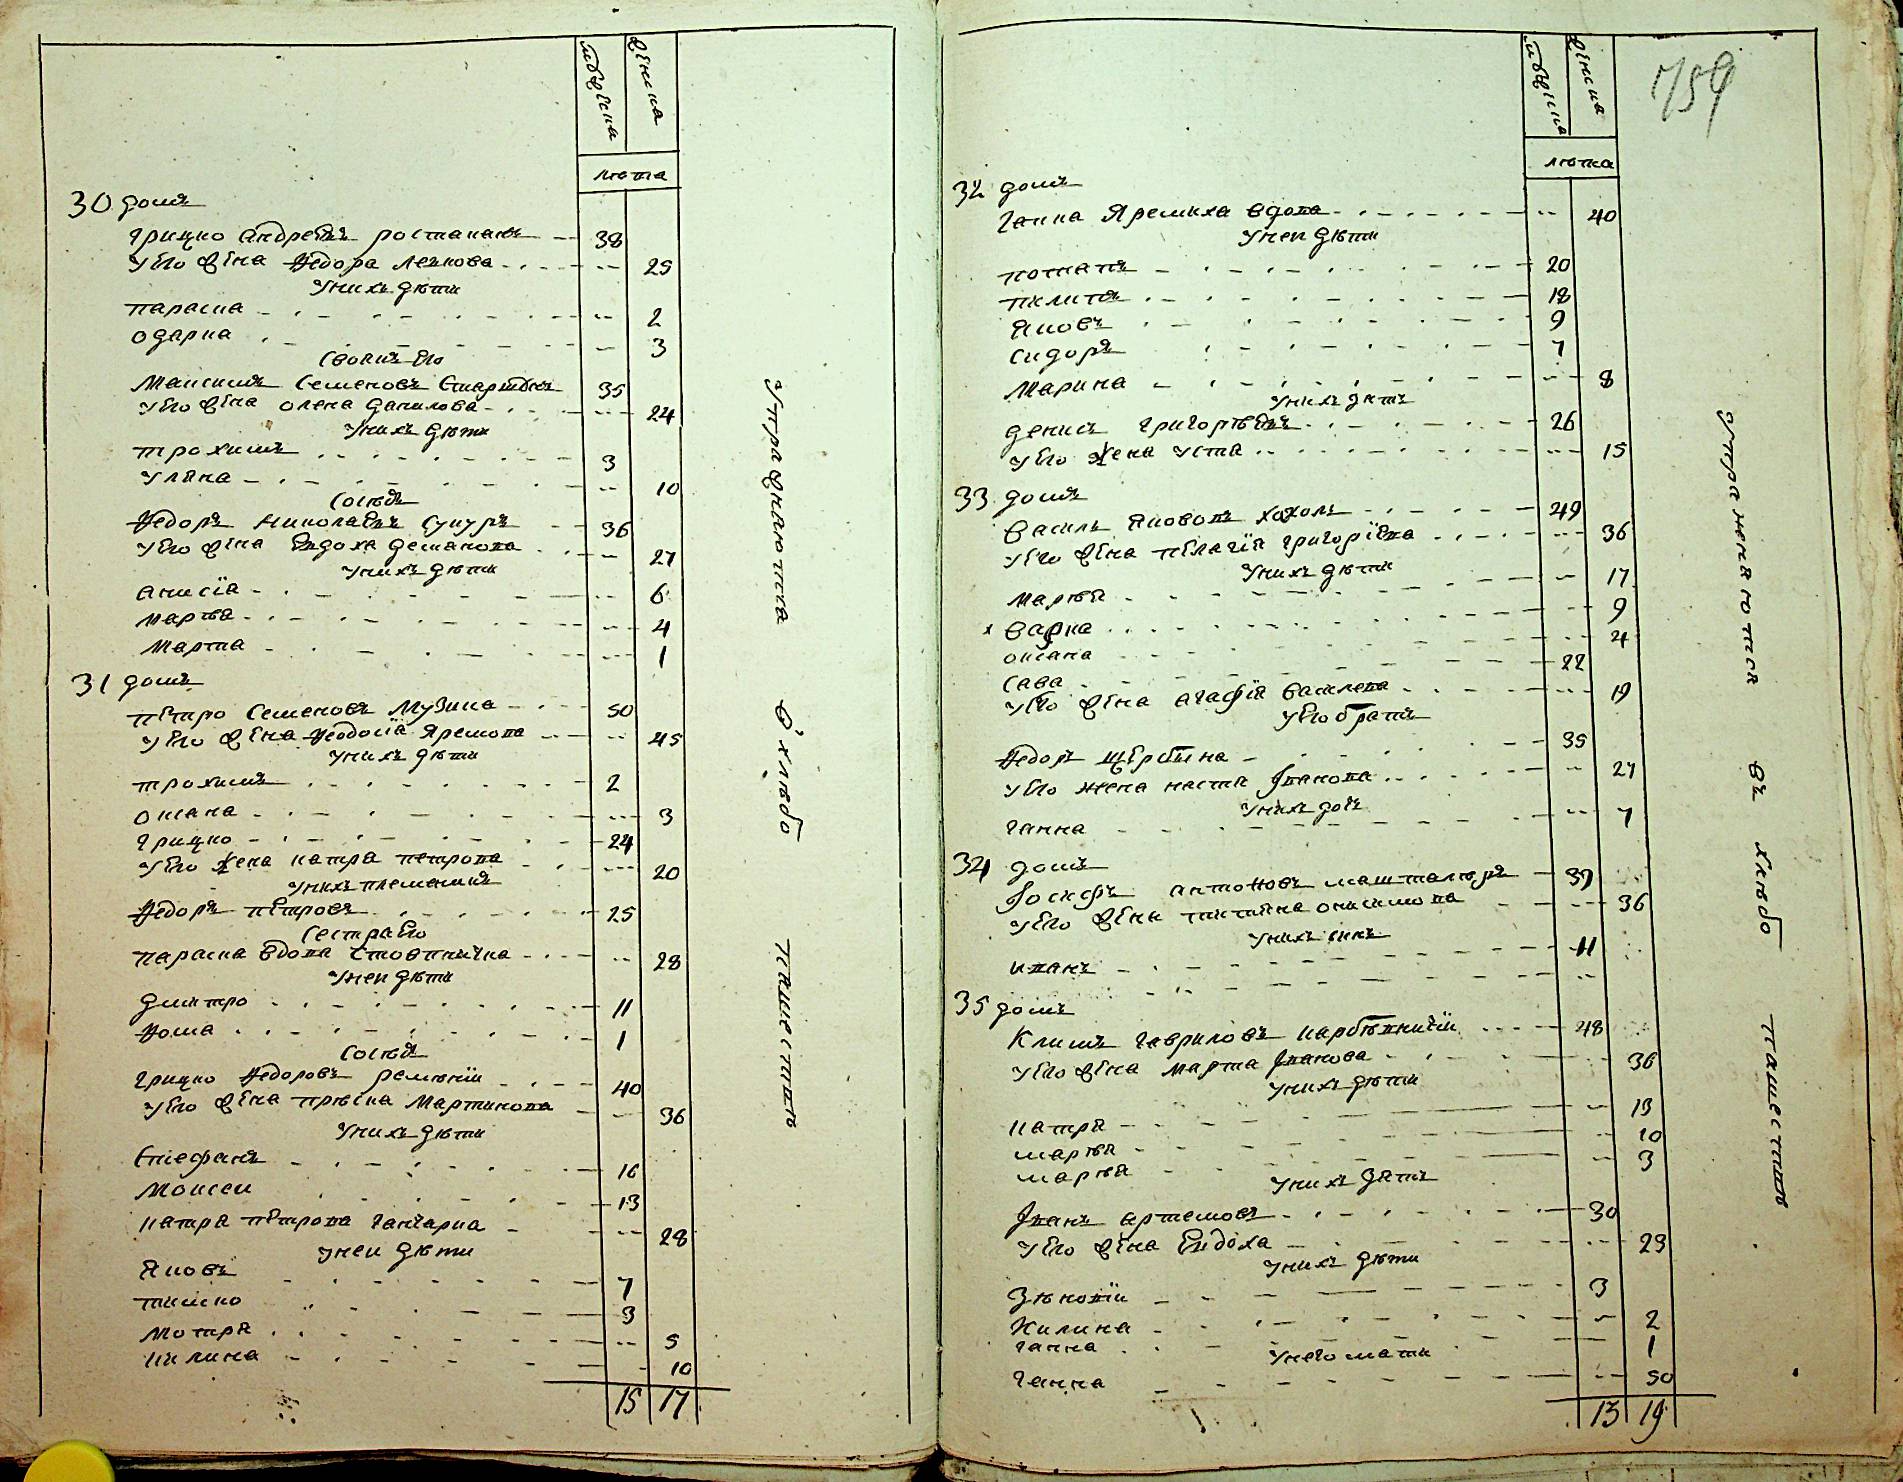 мужеска
женска
лѣта
30 домъ
Грицко Андреевъ 38
У его жена Ѳедора Леккова 25
У нихъ дѣти
Параска 2
Одарка 3
Своякъ его
Максимъ Семеновъ 35
У его жена Олена Данилова 24
У нихъ дѣти
Трохимъ 3
Уляна 10
Сосѣдъ
Ѳедоръ Николаевъ Сукуръ 36
У его жена Евдоха Демянова 27
У нихъ дѣти
Анисія 6
Марѳа 4
Марта 1
31 домъ
Петро Семеновъ Музика 50
У его жена Ѳеодосія Яремова 45
У нихъ дѣти
Трохимъ 2
Оксана 3
Грицко 24
У его жена Катря Петрова 20
У нихъ племяникъ
Ѳедоръ Петровъ 25
Сестра его
Параска вдова Стовпничка 28
У неи дѣти
Дмитро 11
Ѳома 1
Сосѣдъ
Грицко Ѳедоровъ Ремѣній 40
У его жена Прѣска Мартинова 36
У нихъ дѣти
Стефанъ 16
Моисеи 13
Катря Петрова Ганчарка 28
У неи дѣти
Яковъ 7
Тишко 3
Мотря 5
Килина 10
15 17
Упражняются
в хлѣбо
пашестивѣ
759
мужеска
женска
лѣта
32 домъ
Ганна Яремиха вдова 40
У неи дѣти
Потапъ 20
Пилипъ 18
Яковъ 9
Сидоръ 7
Марина 8
У нихъ зять
Денисъ Григорьевъ 26
У его жена Уста 15
33 домъ
Василь Якововъ Хохолъ 49
У его жена Пелагія Григоріева 36
У нихъ дѣти
Марѳа 17
x Варка 9
Оксана 4
Сава 22
У его жена Агафія Василева 19
У его братъ
Ѳедоръ Щербина 35
У его жена Наста Іванова 27
У нихъ дочь
Ганна 7
34 домъ
Іосифъ Антоновъ Машталѣръ 39
У его жена Татіяна Онисимова 36
У нихъ синъ
Иванъ 11
35 домъ
Климъ Гавриловъ 48
У его жена Марта Іванова 36
У нихъ дѣти
Катря 13
Марѳа 10
Марѳа 3
У нихъ зять
Іванъ Артемовъ 30
У его жена Евдоха 23
У нихъ дѣти
Зѣновій 3
Килина 2
Ганна 1
У него мати
Ганна 50
13 19
упражняются
въ хлѣбо
пашестивѣ